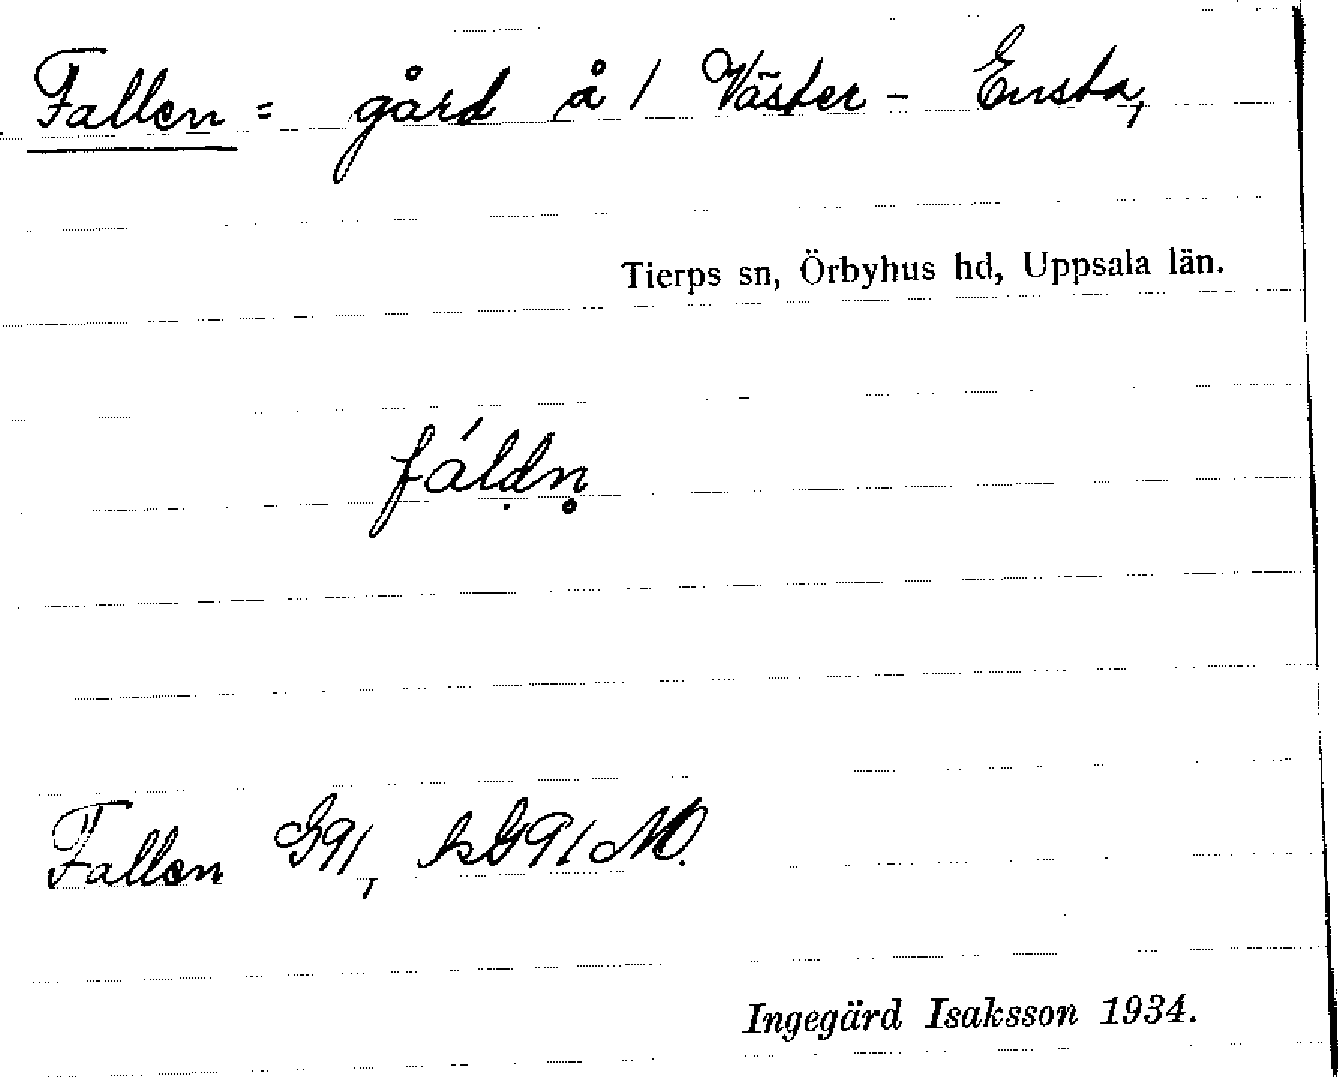 Fallen = gård å 1 Väster - Ensta,
Tierps sn, Örbyhus hd, Uppsala län.
fáḷdn̥
Fallen G91, kG91M.
Ingegärd Isaksson 1934.